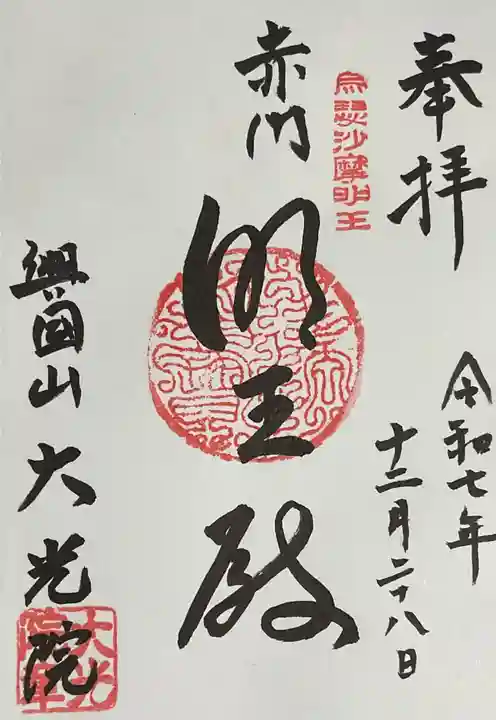 奉拝
令和七年
十二月二十八日
烏瑟沙摩明王
赤門
明王殿
興国山
大光院
大光院章